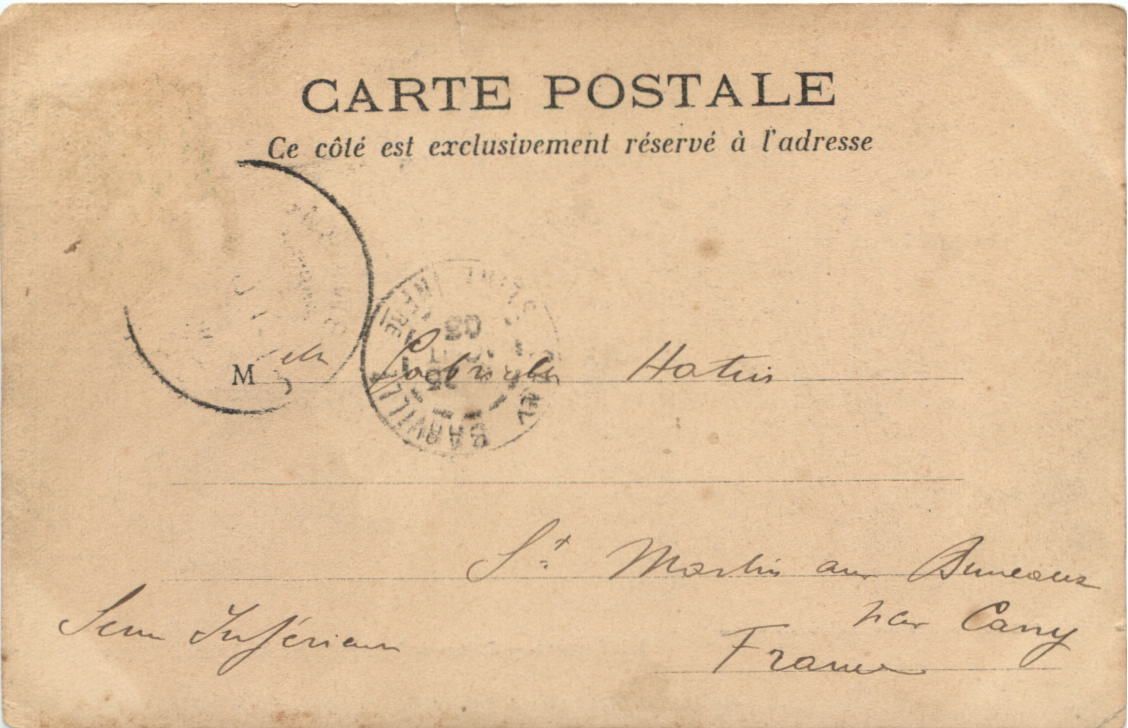 CARTE POSTALE
Ce côté est exclusivement réservé à l'adresse
Melle Gabrielle Hatin
St Martin aux Buneaux
par Cany
Seine Inférieure
France
25
03